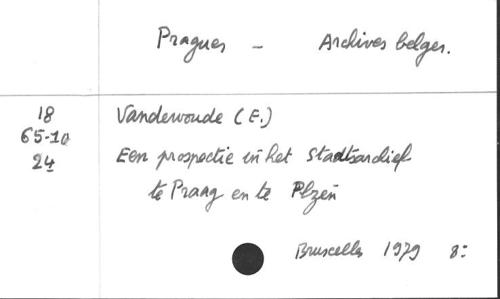 Pragues - Archives belges.
18
65-10
24
Vandewoude (E.)
Een prospectie in het Stadtsarchief
te Praag en te Plzeň
Bruxelles 1979 8: